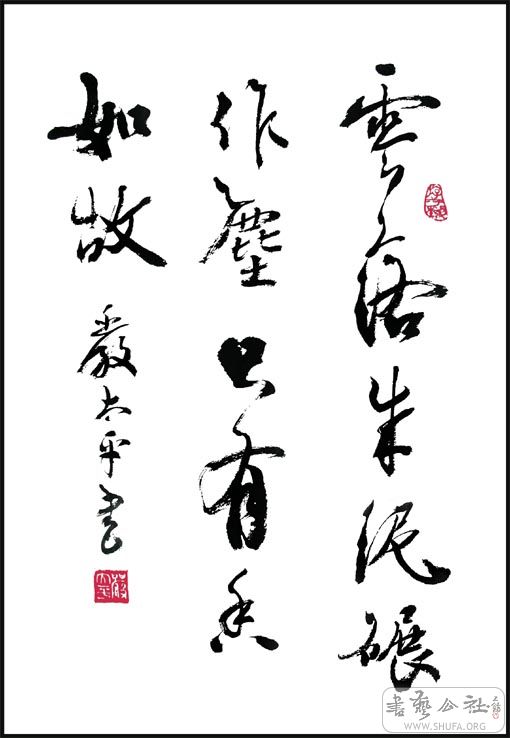 零落成泥碾
作塵只有香
如故
嚴太平書
書藝公社
WWW.SHUFA.ORG